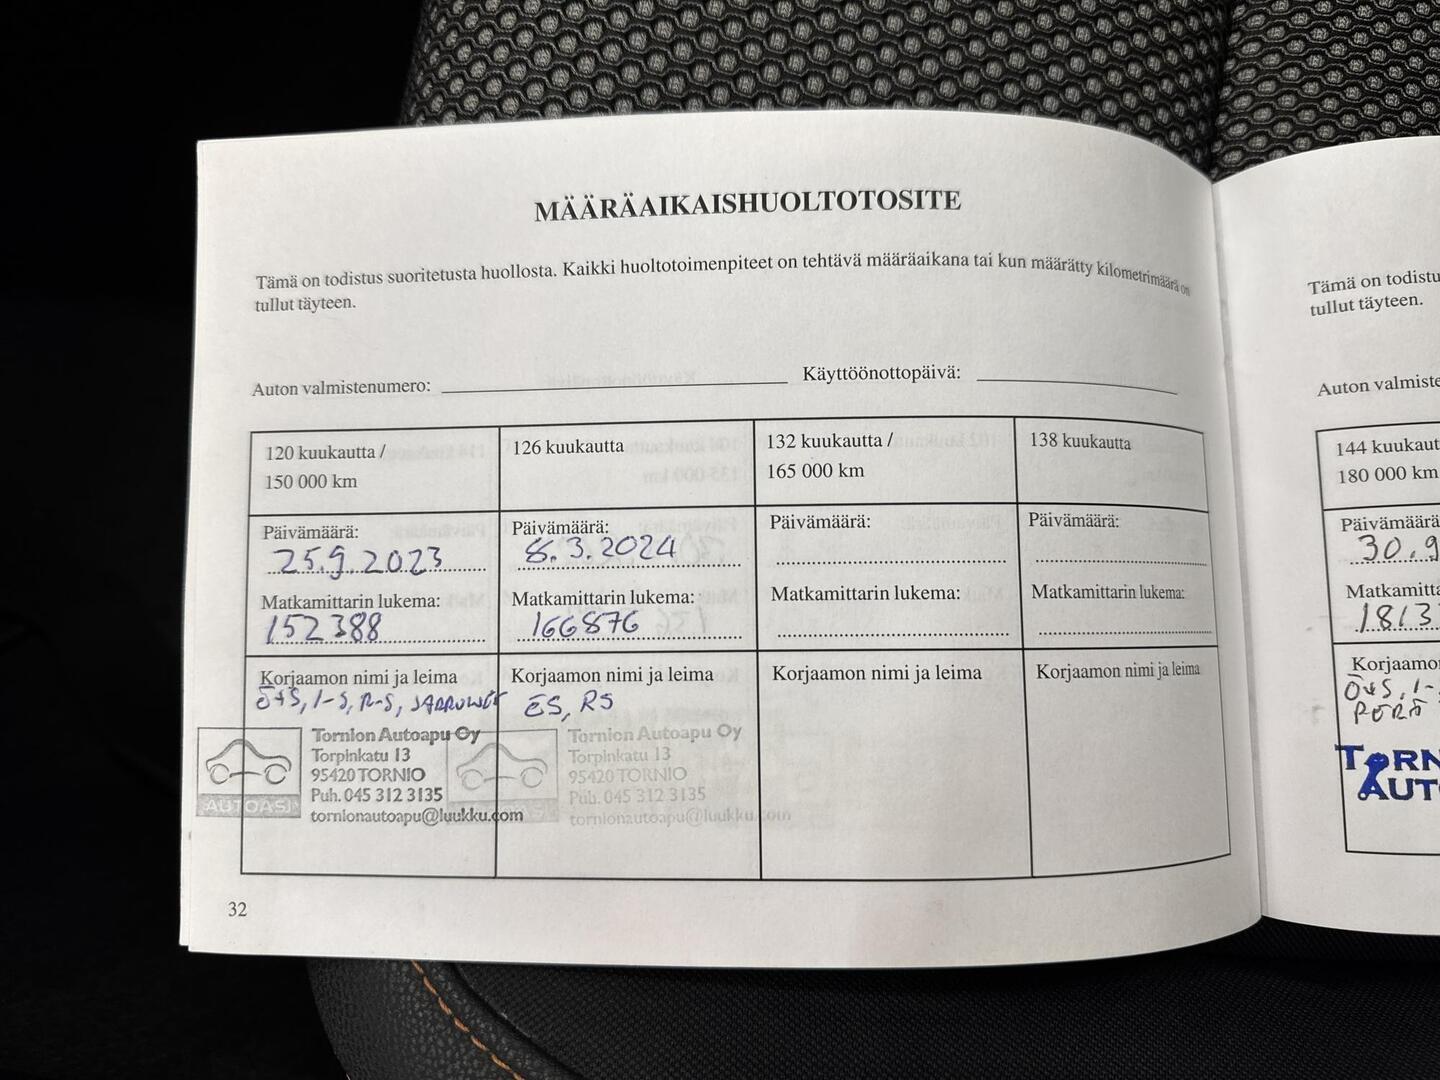 MÄÄRÄAIKAISHUOLTOTOSITE
Tämä on todistus suoritetusta huollosta. Kaikki huoltotoimenpiteet on tehtävä määräaikana tai kun määrätty kilometrimäärä on
tullut täyteen.
Auton valmistenumero:
Käyttöönottopäivä:
120 kuukautta /
150 000 km
Päivämäärä:
25.9.2023
Matkamittarin lukema:
152388
Korjaamon nimi ja leima
Ö+S, I-S, R-S,
Tornion Autoapu Oy
Torpinkatu 13
95420 TORNIO
Puh. 045 312 3135
tornionautoapu@luukku.com
AUTOASI
126 kuukautta
Päivämäärä:
8.3.2024
Matkamittarin lukema:
166876
Korjaamon nimi ja leima
ES, RS
Tornion Autoapu Oy
Torpinkatu 13
95420 TORNIO
Puh. 045 312 3135
tornionautoapu@luukku.com
132 kuukautta /
165 000 km
Päivämäärä:
Matkamittarin lukema:
Korjaamon nimi ja leima
138 kuukautta
Päivämäärä:
Matkamittarin lukema:
Korjaamon nimi ja leima
32
Tämä on todistu
tullut täyteen.
Auton valmiste
144 kuukaut
180 000 km
Päivämäärä
30.9
Matkamitta
1813
Korjaamo
Ö+S, I-
TORN
AUT